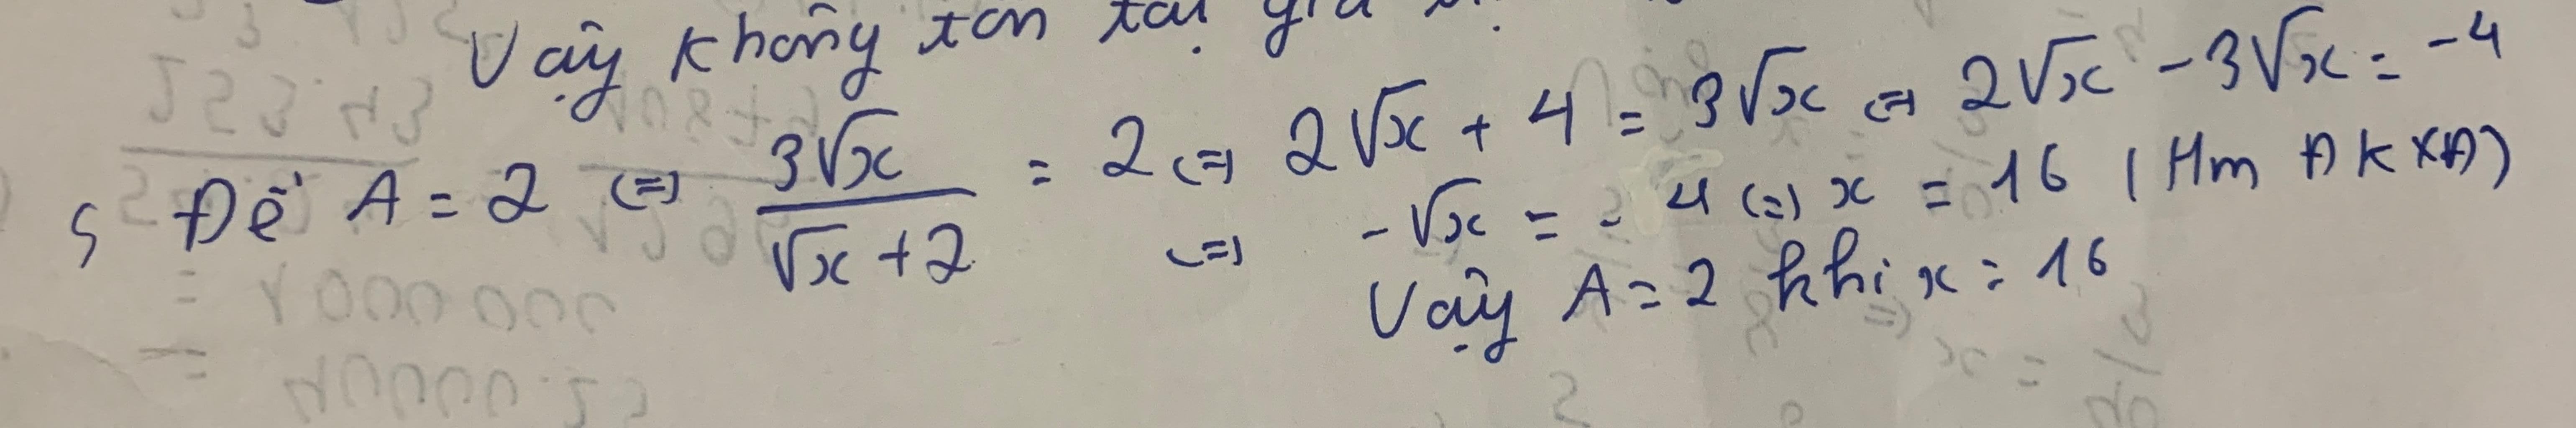 Vậy không tồn tại giá
5 Để A = 2 <=> 3√x / (√x + 2) = 2 <=> 2√x + 4 = 3√x <=> 2√x - 3√x = -4
<=> -√x = -4 <=> x = 16 (tm ĐKXĐ)
Vậy A = 2 khi x = 16